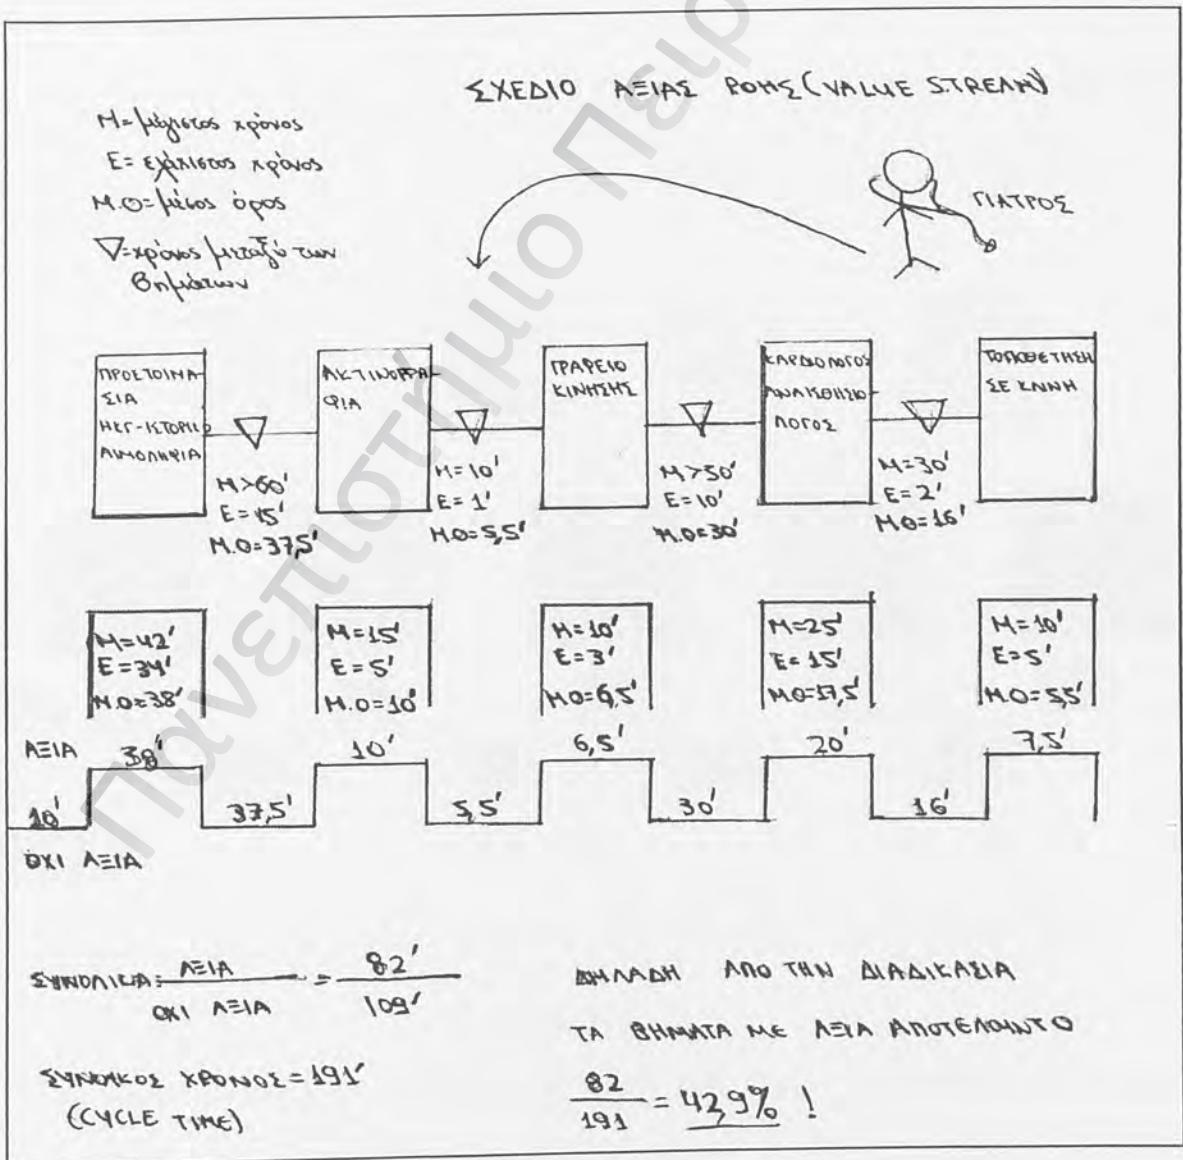 ΣΧΕΔΙΟ ΑΞΙΑΣ ΡΟΗΣ (VALUE STREAM)
Μ= μέγιστος χρόνος
Ε= ελάχιστος χρόνος
Μ.Ο= μέσος όρος
▽=χρόνος μεταξύ των
βημάτων
ΓΙΑΤΡΟΣ
ΠΡΟΕΤΟΙΜΑ-
ΣΙΑ
ΗΚΓ-ΙΣΤΟΡΙΚΟ
ΑΙΜΟΛΗΨΙΑ
Μ>60'
Ε=15'
Μ.Ο=37,5'
ΑΚΤΙΝΟΓΡΑ-
ΦΙΑ
Μ=10'
Ε=1'
Μ.Ο=5,5'
ΓΡΑΦΕΙΟ
ΚΙΝΗΣΗΣ
Μ>50'
Ε=10'
Μ.Ο=30'
ΚΑΡΔΙΟΛΟΓΟΣ
ΑΝΑΙΣΘΗΣΙΟ-
ΛΟΓΟΣ
Μ=30'
Ε=2'
Μ.Ο=16'
ΤΟΠΟΘΕΤΗΣΗ
ΣΕ ΚΛΙΝΗ
Μ=42'
Ε=34'
Μ.Ο=38'
Μ=15'
Ε=5'
Μ.Ο=10'
Μ=10'
Ε=3'
Μ.Ο=6,5'
Μ=25'
Ε=15'
Μ.Ο=17,5'
Μ=10'
Ε=5'
Μ.Ο=5,5'
ΑΞΙΑ 38' 10' 6,5' 20' 7,5'
10' 37,5' 5,5' 30' 16'
ΟΧΙ ΑΞΙΑ
ΣΥΝΟΛΙΚΑ: ΑΞΙΑ / ΟΧΙ ΑΞΙΑ = 82' / 109'
ΣΥΝΟΛΙΚΟΣ ΧΡΟΝΟΣ=191'
(CYCLE TIME)
ΔΗΛΑΔΗ ΑΠΟ ΤΗΝ ΔΙΑΔΙΚΑΣΙΑ
ΤΑ ΒΗΜΑΤΑ ΜΕ ΑΞΙΑ ΑΠΟΤΕΛΟΥΝ ΤΟ
82 / 191 = 42,9% !